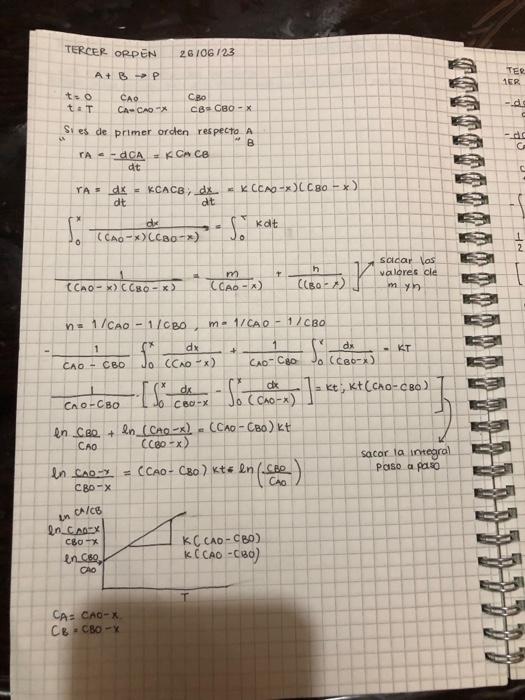 TERCER ORDEN 26/06/23
A + B → P
t=0 CAO CBO
t=T CA=CAO-X CB=CBO-X
Si es de primer orden respecto A
" B
rA = -dCA/dt = KCACB
rA = dx/dt = KCACB; dx/dt = K(CAO-x)(CBO-x)
∫₀ˣ dx/((CAO-x)(CBO-x)) = ∫₀ᵀ kdt
1/((CAO-x)(CBO-x)) = m/(CAO-x) + n/((CBO-x)
sacar los
valores de
m y n
n = 1/CAO - 1/CBO, m = 1/CAO - 1/CBO
- 1/(CAO-CBO) ∫₀ˣ dx/(CAO-x) + 1/(CAO-CBO) ∫₀ˣ dx/(CBO-x) = KT
1/(CAO-CBO) · [∫₀ˣ dx/(CBO-x) - ∫₀ˣ dx/(CAO-x)] = kt; kt(CAO-CBO)
ln CBO/CAO + ln (CAO-x)/(CBO-x) = (CAO-CBO)kt
sacar la integral
paso a paso
ln (CAO-x)/(CBO-x) = (CAO-CBO) kt ln(CBO/CAO)
ln CA/CB
ln (CAO-x)/(CBO-x)
K(CAO-CBO)
K(CAO-CBO)
ln CBO/CAO
T
CA = CAO-X
CB = CBO-X
TER
1ER